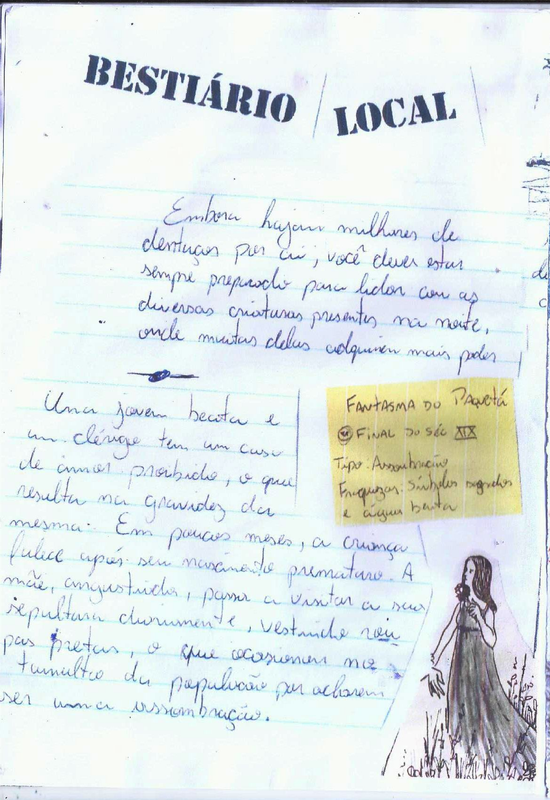 BESTIÁRIO LOCAL
Embora hajam milhares de
dentuços por aí, você deve estar
sempre preparado para lidar com as
diversas criaturas presentes na noite,
onde muitas delas adquirem mais poder
Uma jovem beata e
um clérigo tem um caso
de amor proibido, o que
resulta na gravidez da
mesma. Em poucos meses, a criança
falece após seu nascimento prematuro. A
mãe, angustiada, passa a visitar a sua
sepultura diariamente, vestindo rou
pas pretas, o que ocasionou no
tumulto da população por acharem
ser uma assombração.
FANTASMA DO PAQUETÁ
FINAL DO SÉC XIX
Tipo: Assombração
Fraquezas: Símbolos sagrados
e água benta